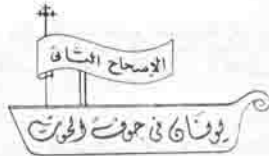 الإصحاح الثاني
يونان في جوف الحوت